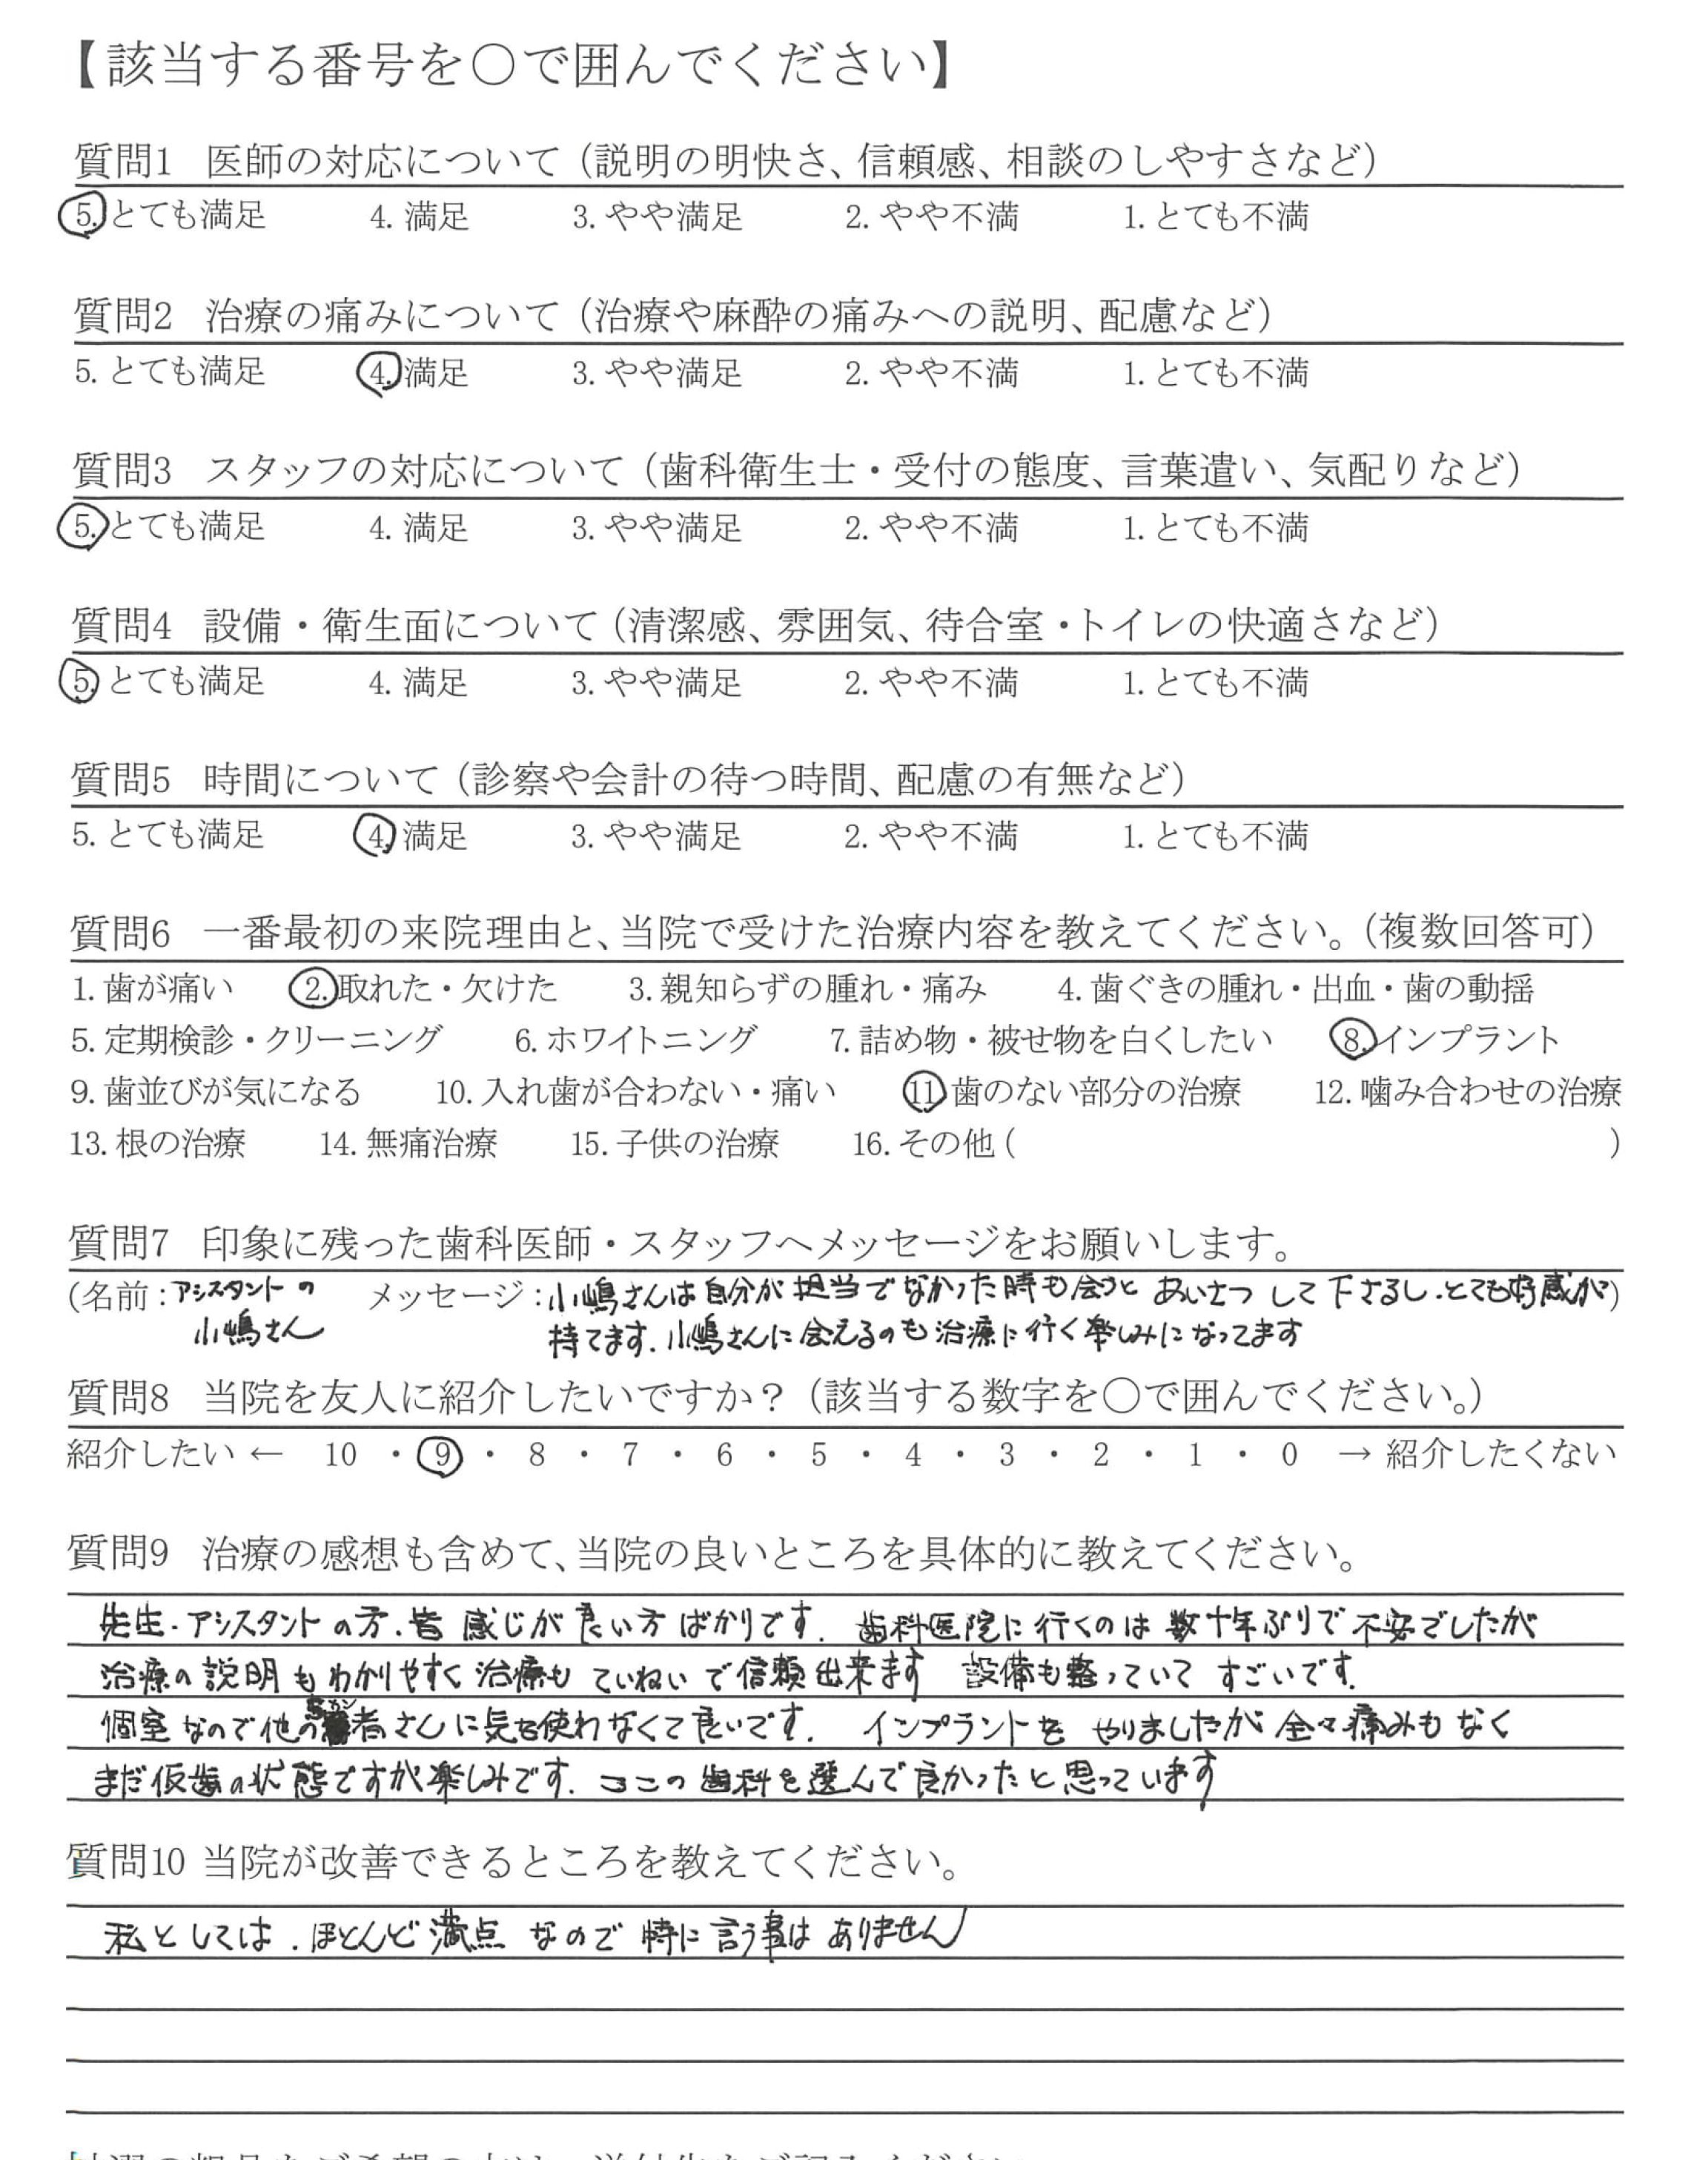 【該当する番号を○で囲んでください】
質問1 医師の対応について（説明の明快さ、信頼感、相談のしやすさなど）
5.とても満足 4.満足 3.やや満足 2.やや不満 1.とても不満
質問2 治療の痛みについて（治療や麻酔の痛みへの説明、配慮など）
5.とても満足 4.満足 3.やや満足 2.やや不満 1.とても不満
質問3 スタッフの対応について（歯科衛生士・受付の態度、言葉遣い、気配りなど）
5.とても満足 4.満足 3.やや満足 2.やや不満 1.とても不満
質問4 設備・衛生面について（清潔感、雰囲気、待合室・トイレの快適さなど）
5.とても満足 4.満足 3.やや満足 2.やや不満 1.とても不満
質問5 時間について（診察や会計の待つ時間、配慮の有無など）
5.とても満足 4.満足 3.やや満足 2.やや不満 1.とても不満
質問6 一番最初の来院理由と、当院で受けた治療内容を教えてください。（複数回答可）
1.歯が痛い 2.取れた・欠けた 3.親知らずの腫れ・痛み 4.歯ぐきの腫れ・出血・歯の動揺
5.定期検診・クリーニング 6.ホワイトニング 7.詰め物・被せ物を白くしたい 8.インプラント
9.歯並びが気になる 10.入れ歯が合わない・痛い 11.歯のない部分の治療 12.噛み合わせの治療
13.根の治療 14.無痛治療 15.子供の治療 16.その他（ ）
質問7 印象に残った歯科医師・スタッフへメッセージをお願いします。
（名前：アシスタントの メッセージ：小嶋さんは自分が担当でなかった時も会うと あいさつ して下さるし、とても好感が）
小嶋さん 持てます。小嶋さんに会えるのも治療に行く楽しみになってます
質問8 当院を友人に紹介したいですか？（該当する数字を○で囲んでください。）
紹介したい ← 10 ・ 9 ・ 8 ・ 7 ・ 6 ・ 5 ・ 4 ・ 3 ・ 2 ・ 1 ・ 0 → 紹介したくない
質問9 治療の感想も含めて、当院の良いところを具体的に教えてください。
先生・アシスタントの方、皆 感じが良い方ばかりです。歯科医院に行くのは数十年ぶりで不安でしたが
治療の説明もわかりやすく治療も ていねいで信頼出来ます 設備も整っていて すごいです。
個室なので他の者さんに気を使わなくて良いです。 インプラントを やりましたが 全々痛みもなく
まだ仮歯の状態ですが楽しみです。ここの歯科を選んで良かったと思っています
質問10 当院が改善できるところを教えてください。
私としては、ほとんど満点なので特に言う事はありません